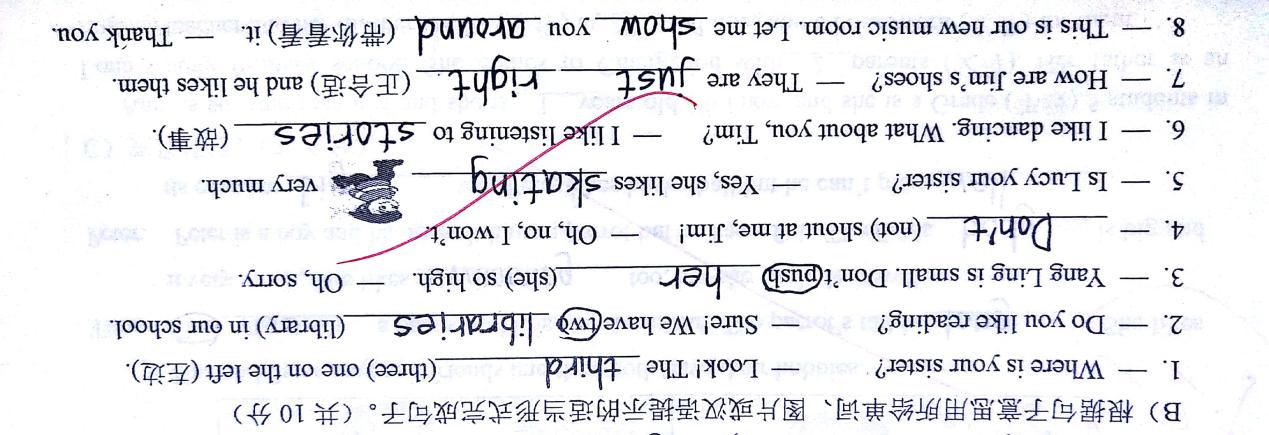 B) 根据句子意思用所给单词、图片或汉语提示的适当形式完成句子。(共 10 分)
1. — Where is your sister? — Look! The third (three) one on the left (左边).
2. — Do you like reading? — Sure! We have two libraries (library) in our school.
3. — Yang Ling is small. Don't push her (she) so high. — Oh, sorry.
4. Don't (not) shout at me, Jim! — Oh, no, I won't.
5. — Is Lucy your sister? — Yes, she likes skating very much.
6. — I like dancing. What about you, Tim? — I like listening to stories (故事).
7. — How are Jim's shoes? — They are just right (正合适) and he likes them.
8. — This is our new music room. Let me show you around (带你看看) it. — Thank you.